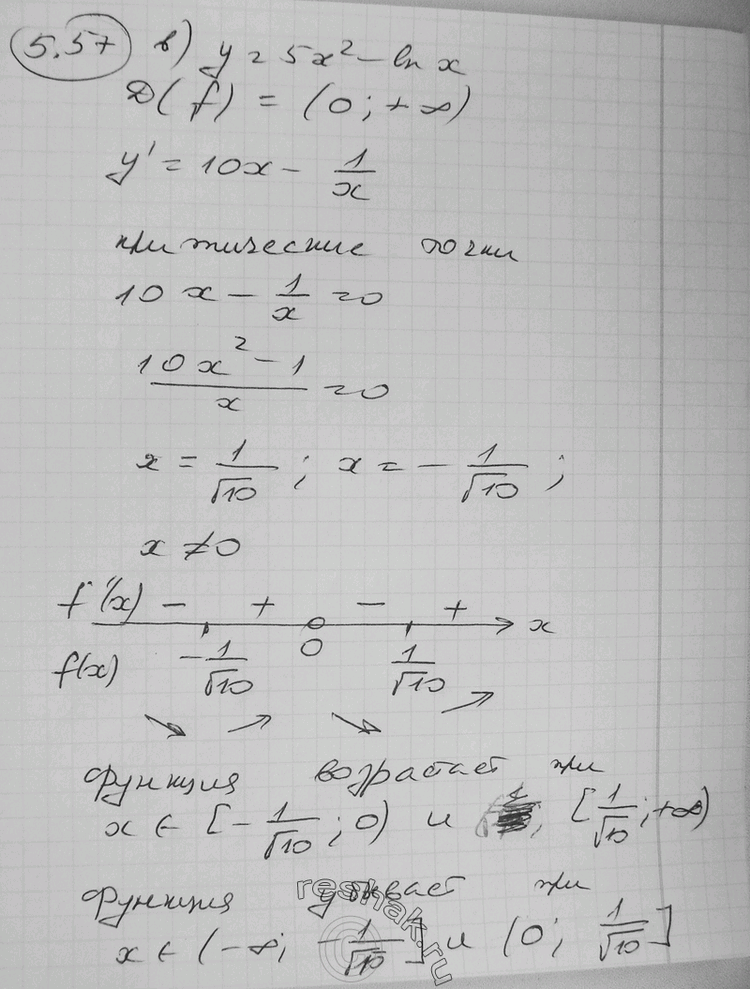 5.57 в) y = 5x² - ln x
D(f) = (0; +∞)
y' = 10x - 1/x
критические точки
10x - 1/x = 0
(10x² - 1)/x = 0
x = 1/√10 ; x = - 1/√10 ;
x ≠ 0
f'(x) - + - + x
f(x) -1/√10 0 1/√10
функция возрастает при
x ∈ [-1/√10; 0) и [1/√10; +∞)
функция убывает при
x ∈ (-∞; -1/√10] и (0; 1/√10]
reshak.ru